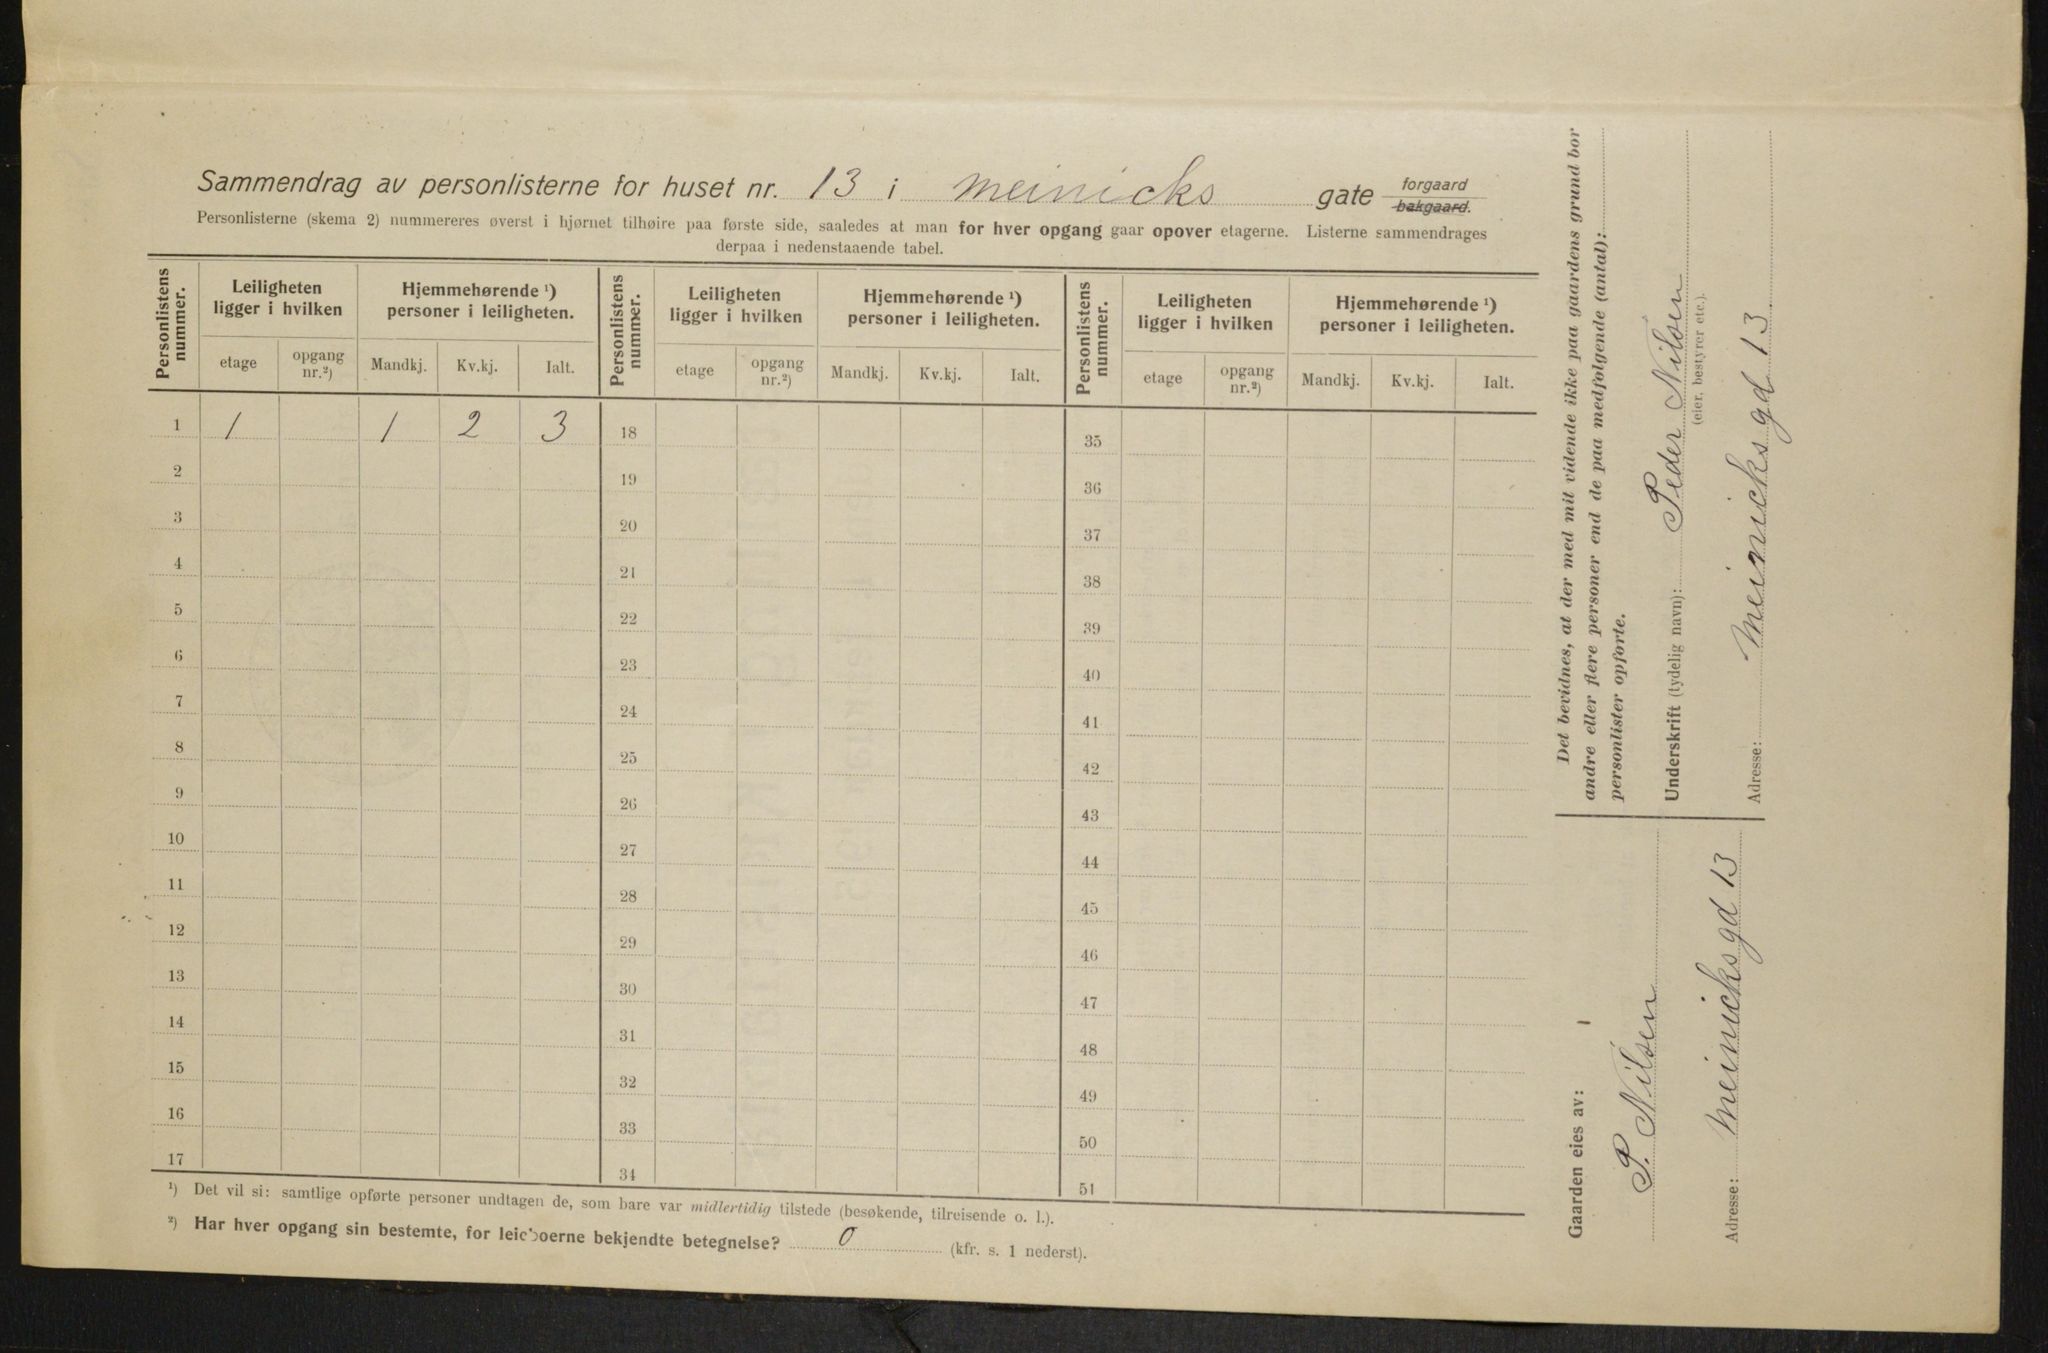 Sammendrag av personlisterne for huset nr. 13 i Meinicks gate forgaard bakgaard.
Personlisterne (skema 2) nummereres øverst i hjørnet tilhøire paa første side, saaledes at man for hver opgang gaar opover etagerne. Listerne sammendrages
derpaa i nedenstaaende tabel.
Personlistens nummer. Leiligheten ligger i hvilken Hjemmehørende ¹) personer i leiligheten. Personlistens nummer. Leiligheten ligger i hvilken Hjemmehørende ¹) personer i leiligheten. Personlistens nummer. Leiligheten ligger i hvilken Hjemmehørende ¹) personer i leiligheten.
etage opgang nr.²) Mandkj. Kv.kj. Ialt. etage opgang nr.²) Mandkj. Kv.kj. Ialt. etage opgang nr.²) Mandkj. Kv.kj. Ialt.
1 1 1 2 3 18 35
2 19 36
3 20 37
4 21 38
5 22 39
6 23 40
7 24 41
8 25 42
9 26 43
10 27 44
11 28 45
12 29 46
13 30 47
14 31 48
15 32 49
16 33 50
17 34 51
¹) Det vil si: samtlige opførte personer undtagen de, som bare var midlertidig tilstede (besøkende, tilreisende o. l.).
²) Har hver opgang sin bestemte, for leieboerne bekjendte betegnelse? 0 (kfr. s. 1 nederst).
Det bevidnes, at der med mit vidende ikke paa gaardens grund bor
andre eller flere personer end de paa medfølgende (antal):
personlister opførte.
Underskrift (tydelig navn): Peder Nilsen
(eier, bestyrer etc.).
Adresse: Meinicks gd 13
Gaarden eies av: 1
P. Nilsen
Adresse: Meinicksgd 13